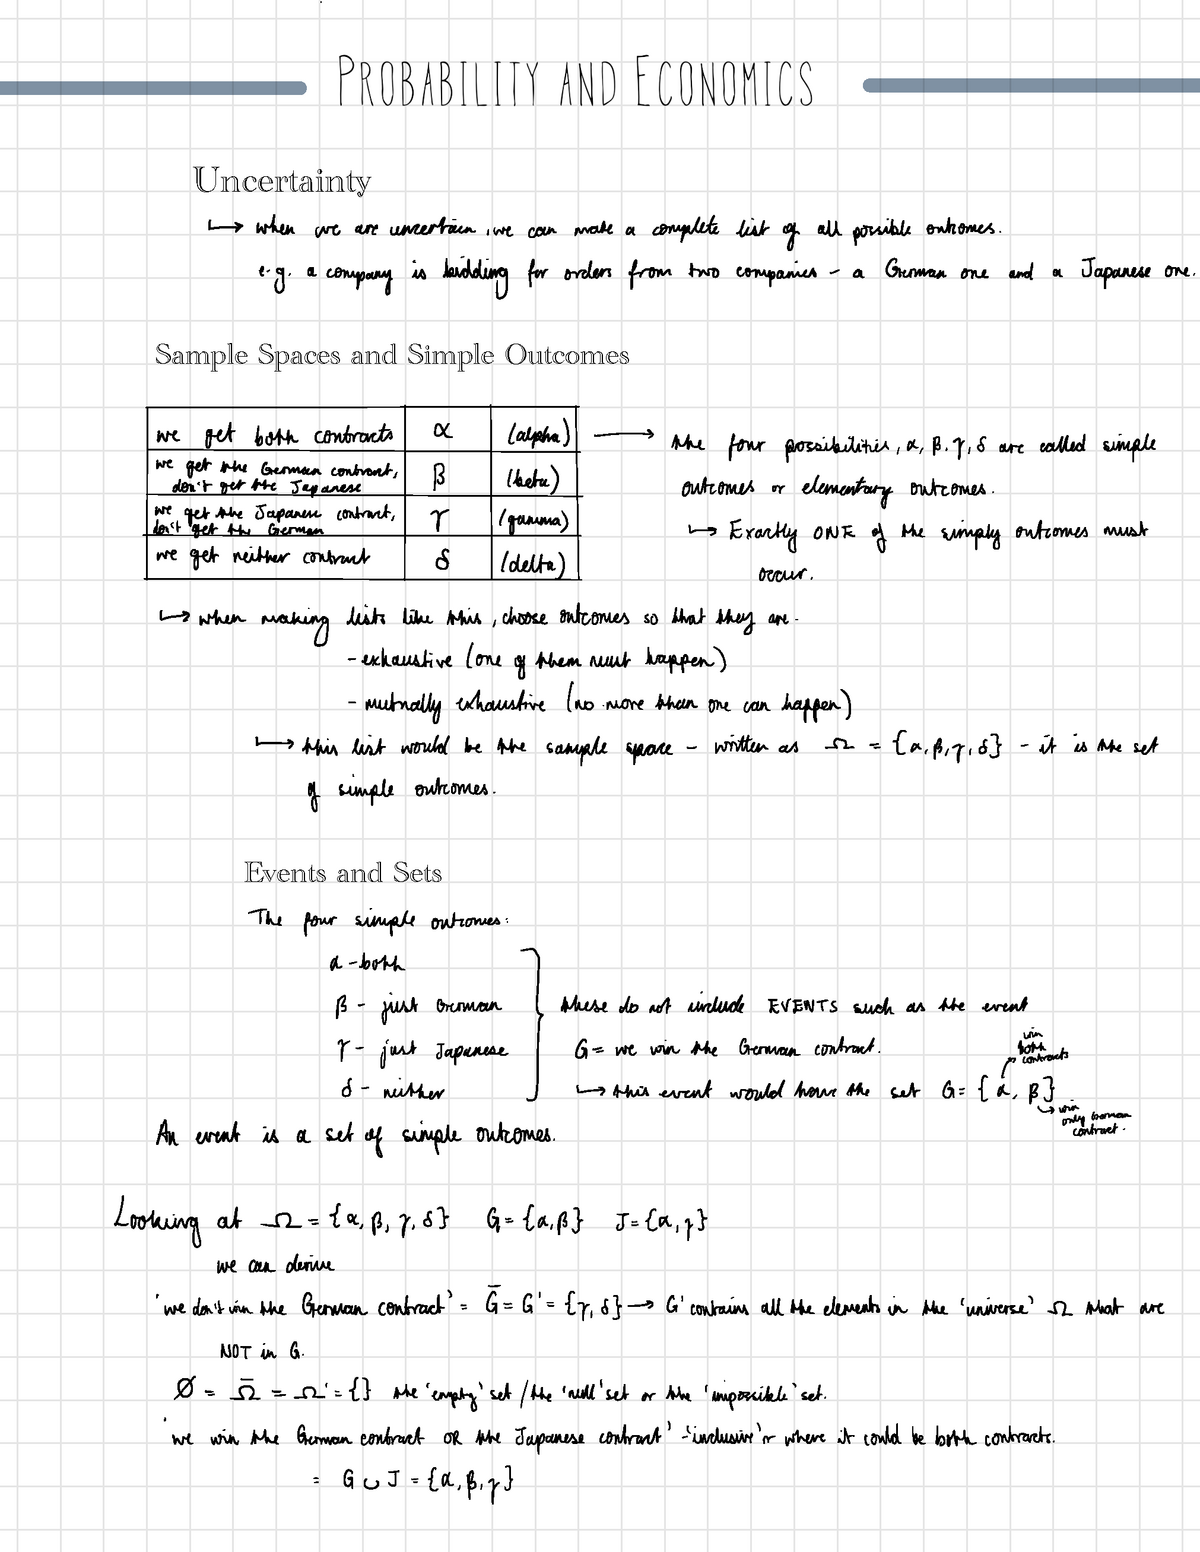 PROBABILITY AND ECONOMICS
Uncertainty
↳ when we are uncertain, we can make a complete list of all possible outcomes.
e.g. a company is bidding for orders from two companies – a German one and a Japanese one.
Sample Spaces and Simple Outcomes
we get both contracts α (alpha) → the four possibilities, α, β, γ, δ are called simple
we get the German contract, don't get the Japanese β (beta) outcomes or elementary outcomes.
we get the Japanese contract, don't get the German γ (gamma) ↳ Exactly ONE of the simply outcomes must
we get neither contract δ (delta) occur.
↳ when making lists like this, choose outcomes so that they are -
- exhaustive (one of them must happen)
- mutually exhaustive (no more than one can happen)
↳ this list would be the sample space – written as Ω = {α, β, γ, δ} – it is the set
of simple outcomes.
Events and Sets
The four simple outcomes:
α – both
β – just German these do not include EVENTS such as the event
γ – just Japanese G = we win the German contract.
win both contracts
δ – neither ↳ this event would have the set G = {α, β}
↳ win only German contract.
An event is a set of simple outcomes.
Looking at Ω = {α, β, γ, δ} G = {α, β} J = {α, γ}
we can derive
'we don't win the German contract' = G̅ = G' = {γ, δ} → G' contains all the elements in the 'universe' Ω that are
NOT in G.
Ø = Ω̅ = Ω' = {} the 'empty' set / the 'null' set or the 'impossible' set.
'we win the German contract OR the Japanese contract' – 'inclusive' or where it could be both contracts.
= G ∪ J = {α, β, γ}